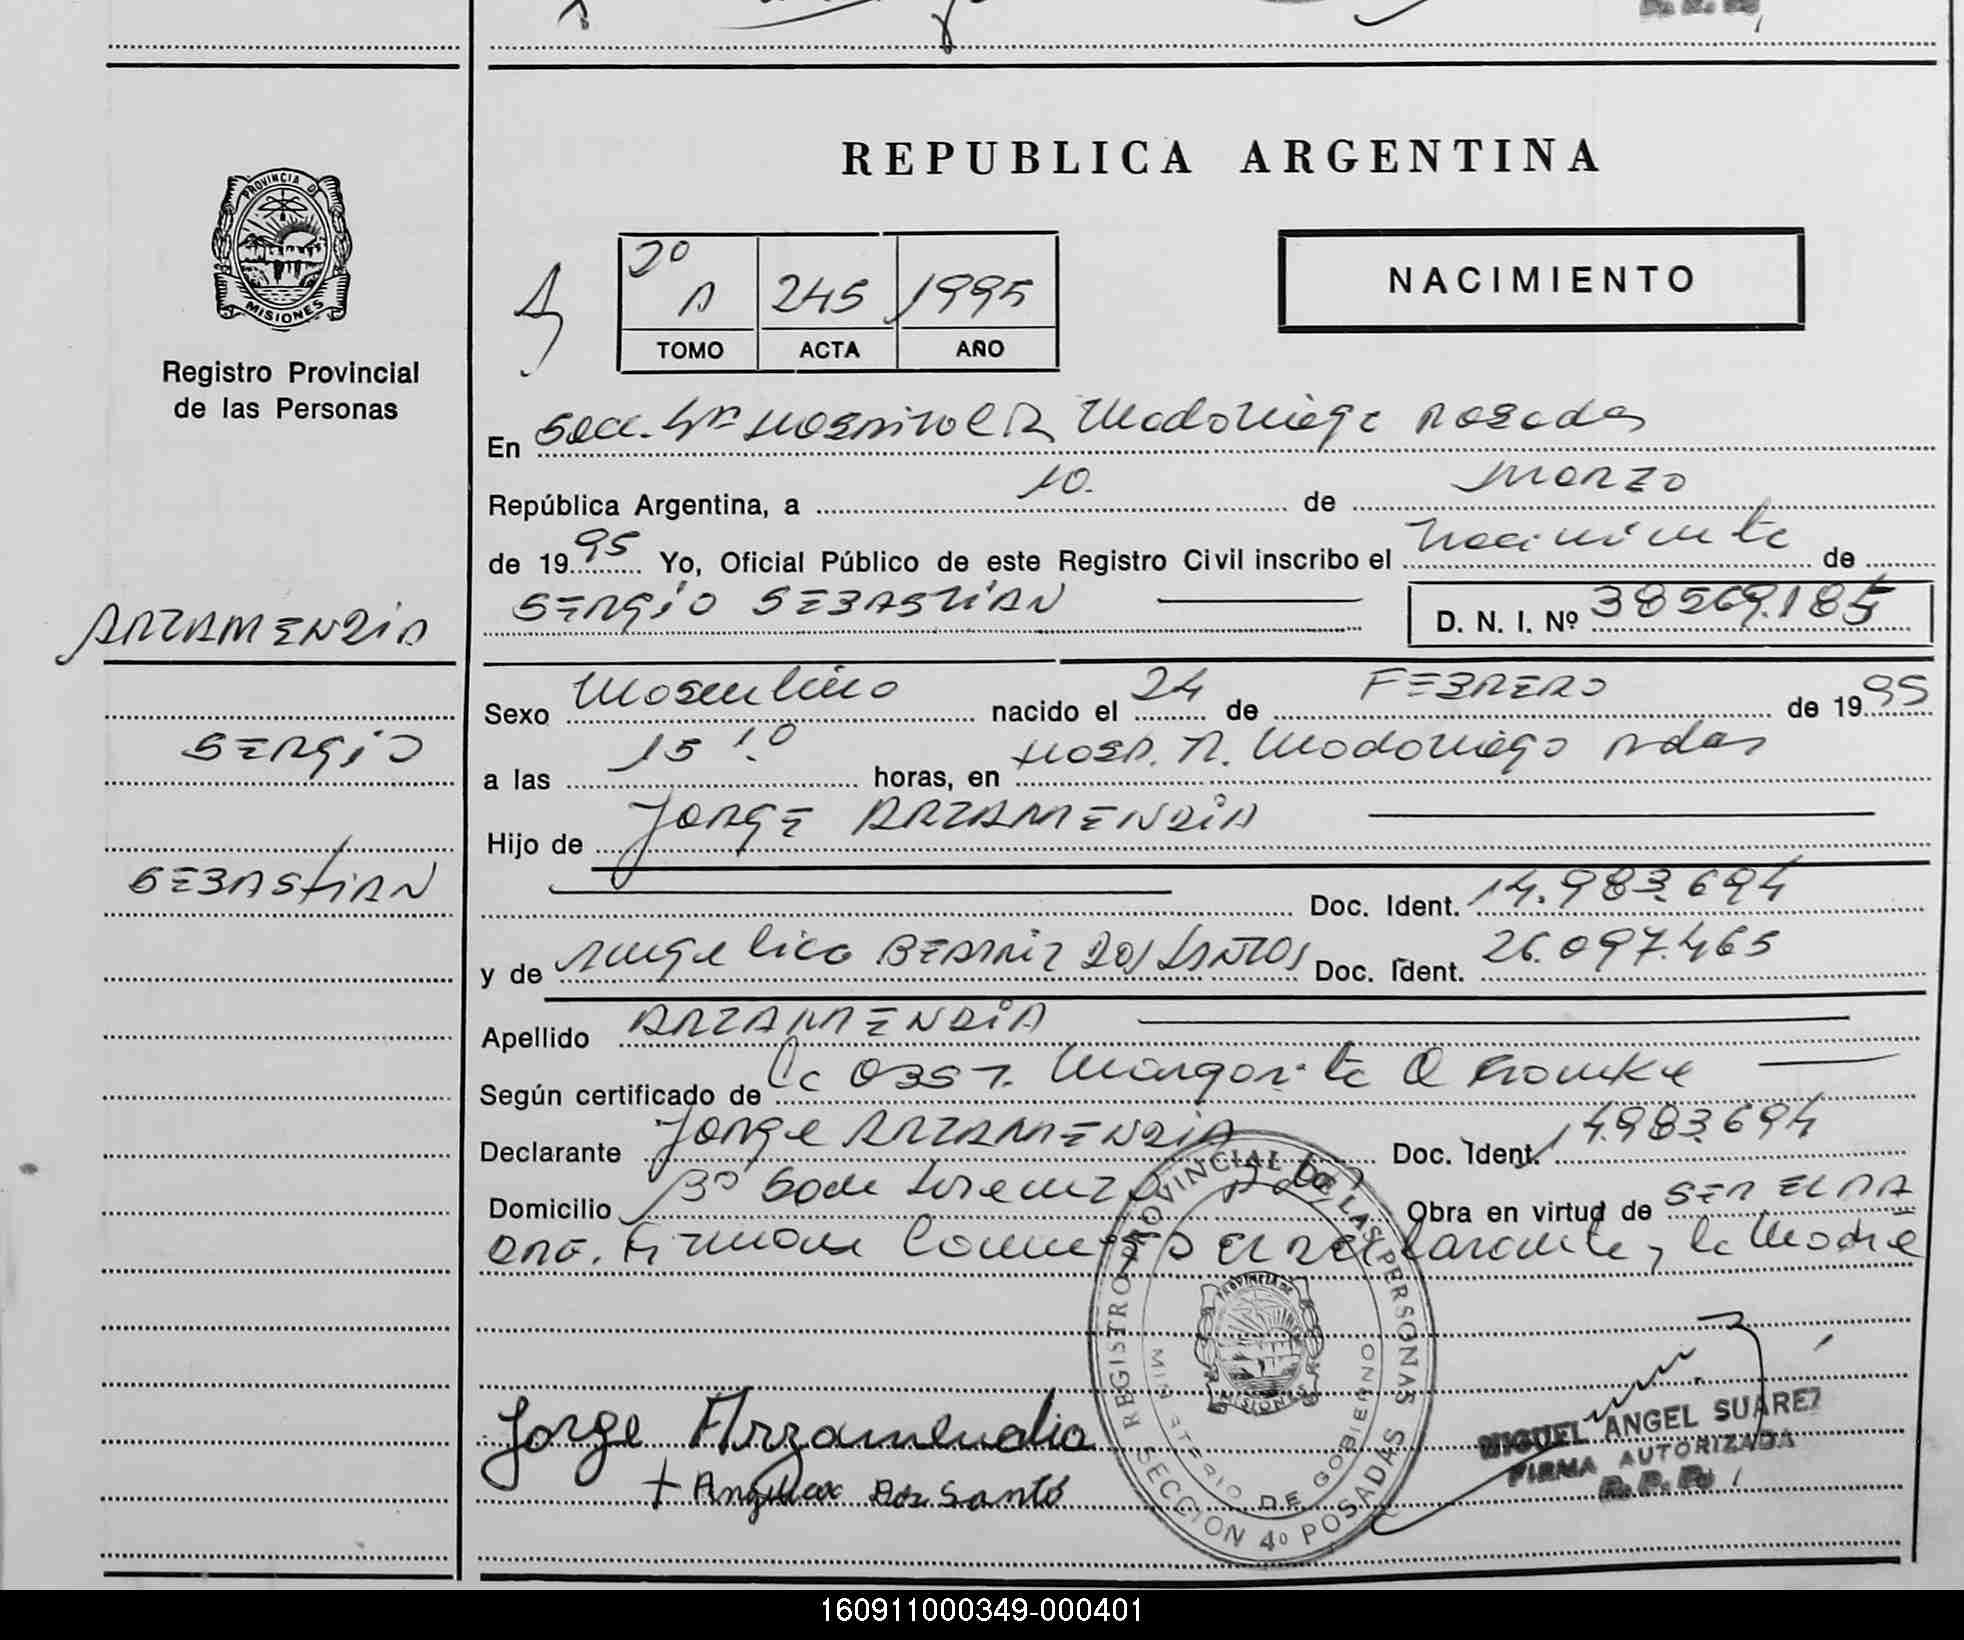 REPUBLICA ARGENTINA
PROVINCIA DE
MISIONES
Registro Provincial
de las Personas
2º
A 245 1995
TOMO ACTA AÑO
NACIMIENTO
En Secc. 4ta Hospital R. Madariaga Posadas
República Argentina, a 10. de Marzo
de 1995 Yo, Oficial Público de este Registro Civil inscribo el Nacimiento de
SERGIO SEBASTIÁN D. N. I. Nº 38569.185
ARZAMENDIA
Sexo Masculino nacido el 24 de FEBRERO de 1995
SERGIO
a las 15 10 horas, en Hosp. R. Madariaga Pdas
Hijo de JORGE ARZAMENDIA
SEBASTIAN
Doc. Ident. 14.983.694
y de Angelica BEATRIZ DOS SANTOS Doc. Ident. 26.097.465
Apellido ARZAMENDIA
Según certificado de la OBST. Margarita
Declarante Jorge ARZAMENDIA Doc. Ident. 14983.694
Domicilio Bº San Lorenzo Pdas Obra en virtud de SER EL PA
DRE. Firman Conmigo El Declarante y la Madre
Jorge Arzamendia
+ Angelica Dos Santos
REGISTRO PROVINCIAL DE LAS PERSONAS
MINISTERIO DE GOBIERNO
PROVINCIA DE
MISIONES
SECCION 4º POSADAS
MIGUEL ANGEL SUAREZ
FIRMA AUTORIZADA
R. P. P.
160911000349-000401